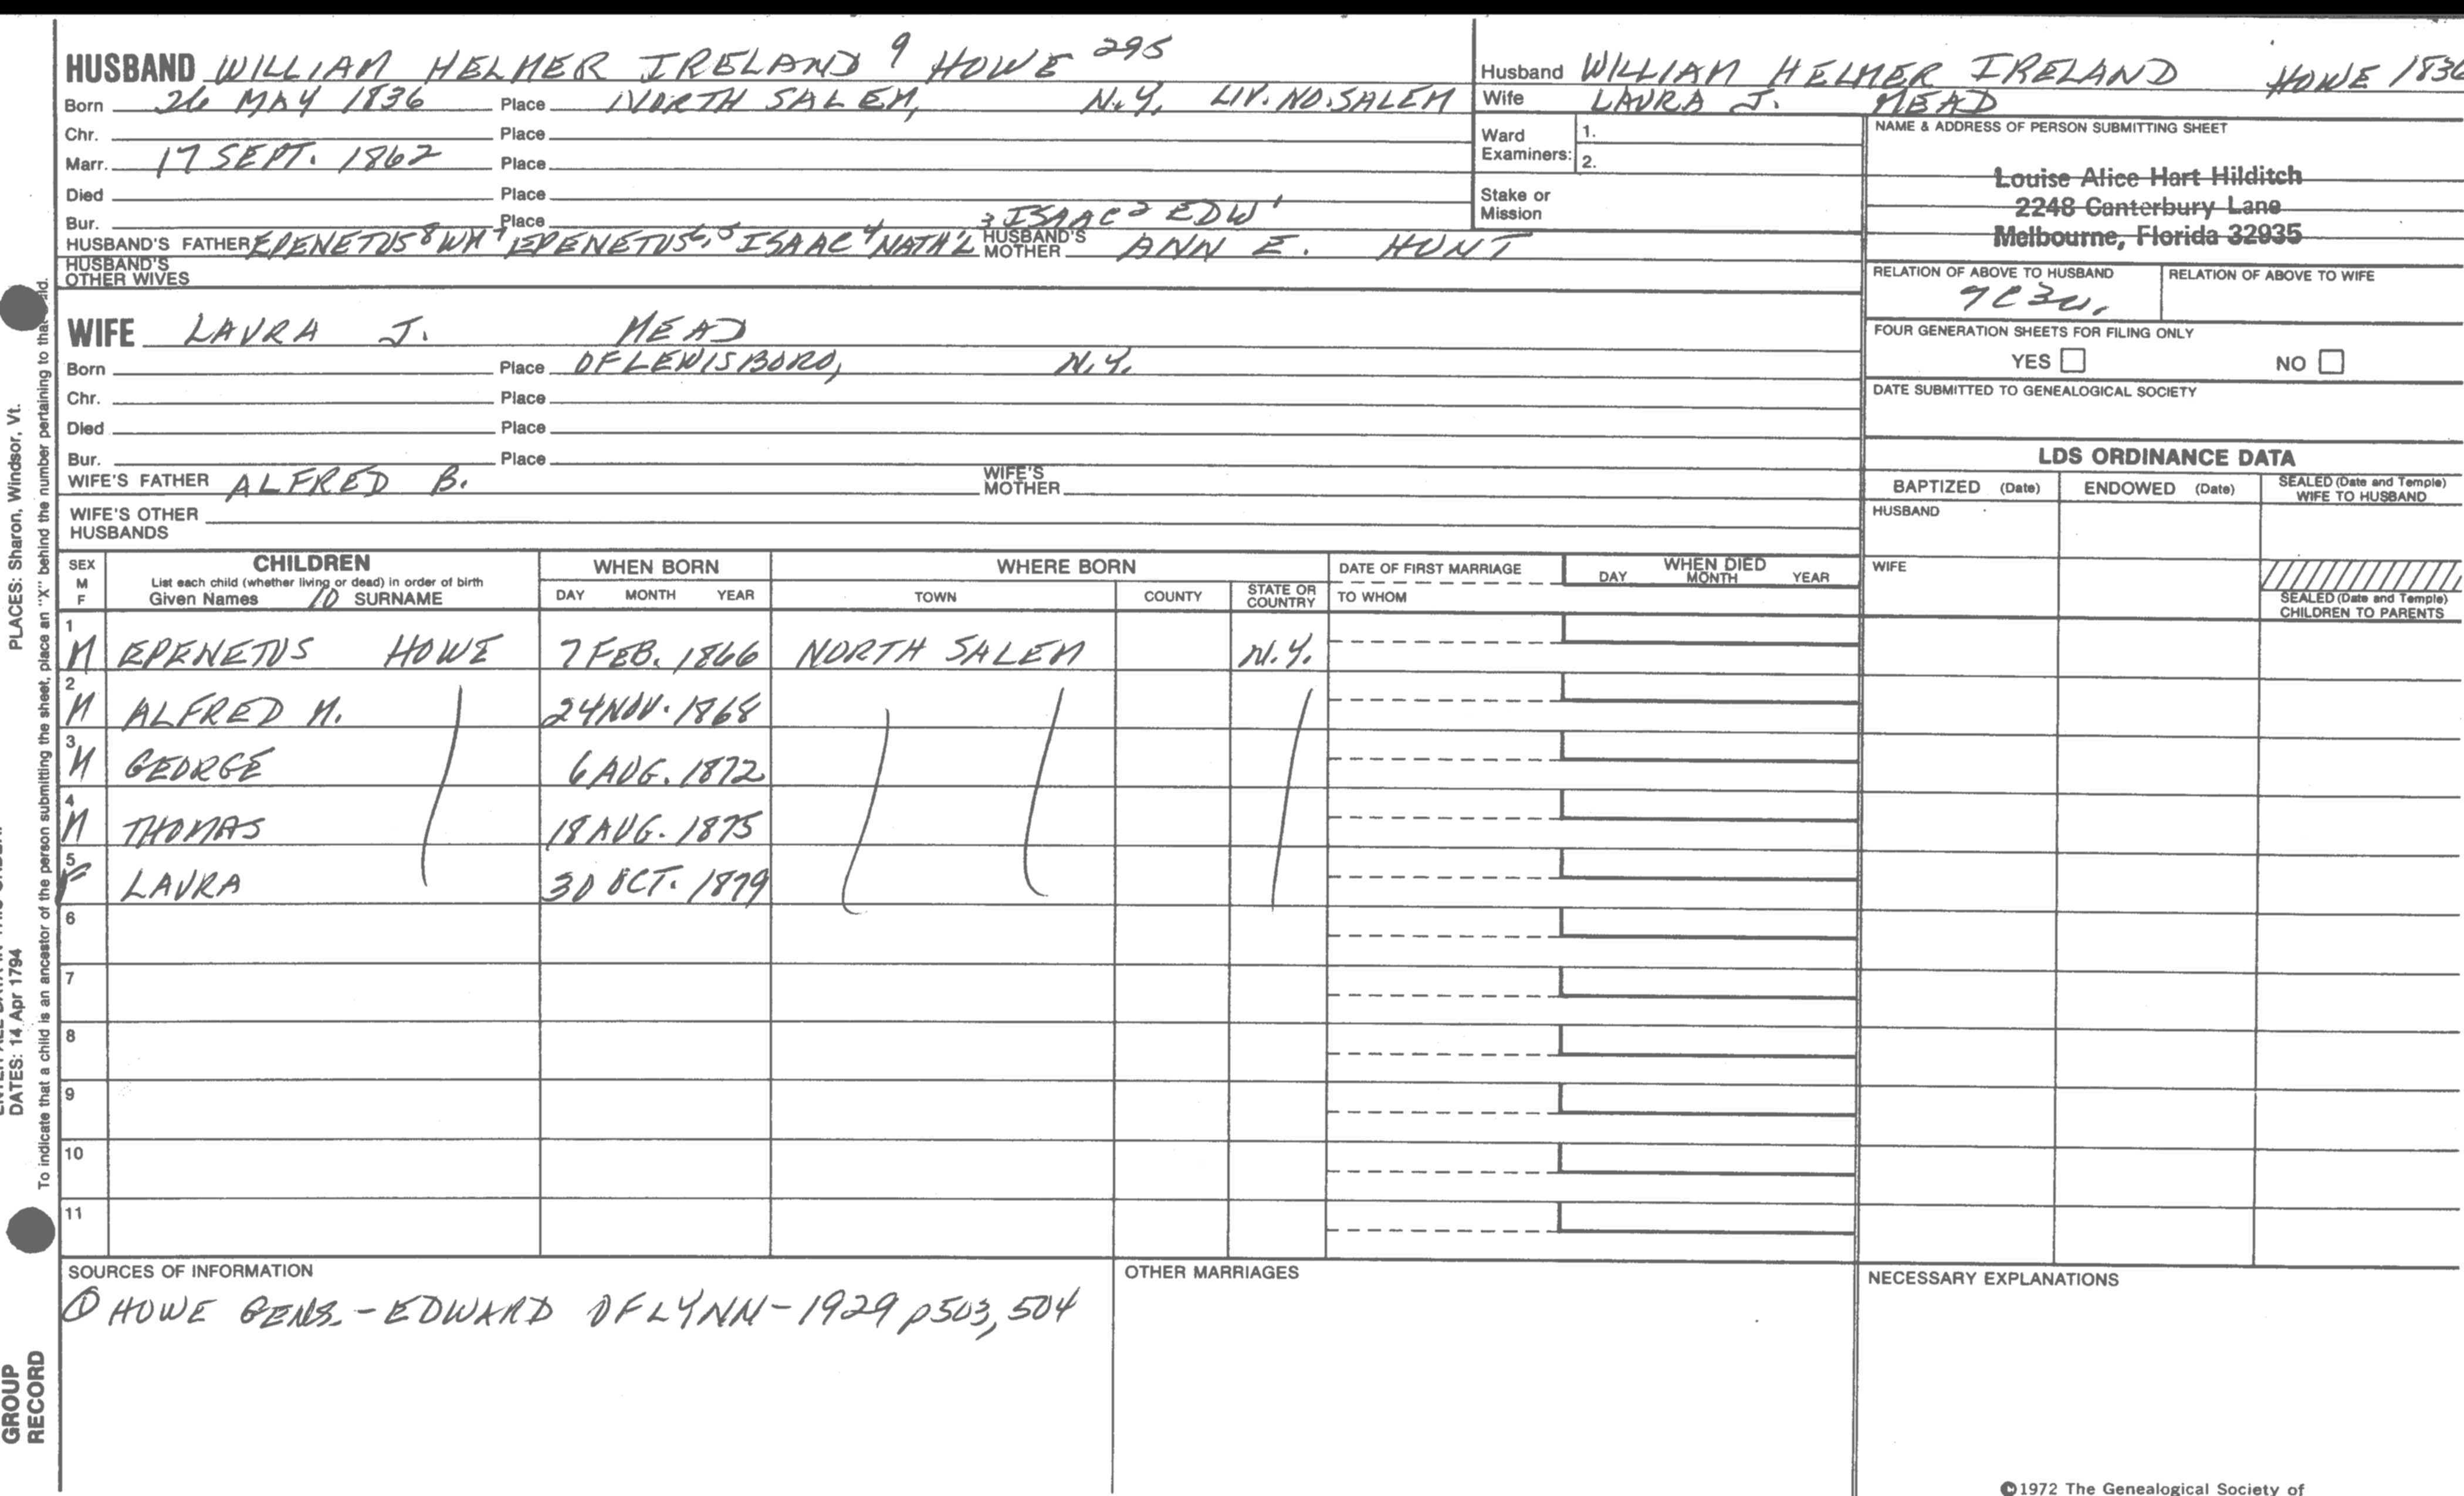 HUSBAND WILLIAM HELMER IRELAND 9 HOWE 295
Born 26 MAY 1836 Place NORTH SALEM, N.Y. LIV. NO. SALEM
Chr. Place
Marr. 17 SEPT. 1862 Place
Died Place
Bur. Place 3 ISAAC 2 EDW 1
HUSBAND'S FATHER EPENETUS 8 WM 7 EPENETUS 6, 5 ISAAC 4 NATH'L HUSBAND'S MOTHER ANN E. HUNT
HUSBAND'S OTHER WIVES
WIFE LAURA J. MEAD
Born Place OF LEWISBORO, N.Y.
Chr. Place
Died Place
Bur. Place
WIFE'S FATHER ALFRED B. WIFE'S MOTHER
WIFE'S OTHER HUSBANDS
Husband WILLIAM HELMER IRELAND HOWE 1836
Wife LAURA J. MEAD
Ward Examiners: 1.
2.
Stake or Mission
NAME & ADDRESS OF PERSON SUBMITTING SHEET
Louise Alice Hart Hilditch
2248 Canterbury Lane
Melbourne, Florida 32935
RELATION OF ABOVE TO HUSBAND RELATION OF ABOVE TO WIFE
7C3R.
FOUR GENERATION SHEETS FOR FILING ONLY
YES NO
DATE SUBMITTED TO GENEALOGICAL SOCIETY
LDS ORDINANCE DATA
BAPTIZED (Date) ENDOWED (Date) SEALED (Date and Temple) WIFE TO HUSBAND
HUSBAND
WIFE
SEALED (Date and Temple) CHILDREN TO PARENTS
SEX M F CHILDREN WHEN BORN WHERE BORN DATE OF FIRST MARRIAGE WHEN DIED
List each child (whether living or dead) in order of birth
Given Names 10 SURNAME DAY MONTH YEAR TOWN COUNTY STATE OR COUNTRY TO WHOM DAY MONTH YEAR
1 M EPENETUS HOWE 7 FEB. 1866 NORTH SALEM N.Y.
2 M ALFRED M. 24 NOV. 1868
3 M GEORGE 6 AUG. 1872
4 M THOMAS 18 AUG. 1875
5 F LAURA 30 OCT. 1879
6
7
8
9
10
11
SOURCES OF INFORMATION
① HOWE GENS. - EDWARD OF LYNN - 1929 p503, 504
OTHER MARRIAGES
NECESSARY EXPLANATIONS
©1972 The Genealogical Society of
PLACES: Sharon, Windsor, Vt.
DATES: 14 Apr 1794
To indicate that a child is an ancestor of the person submitting the sheet, place an "X" behind the number pertaining to that child.
GROUP
RECORD